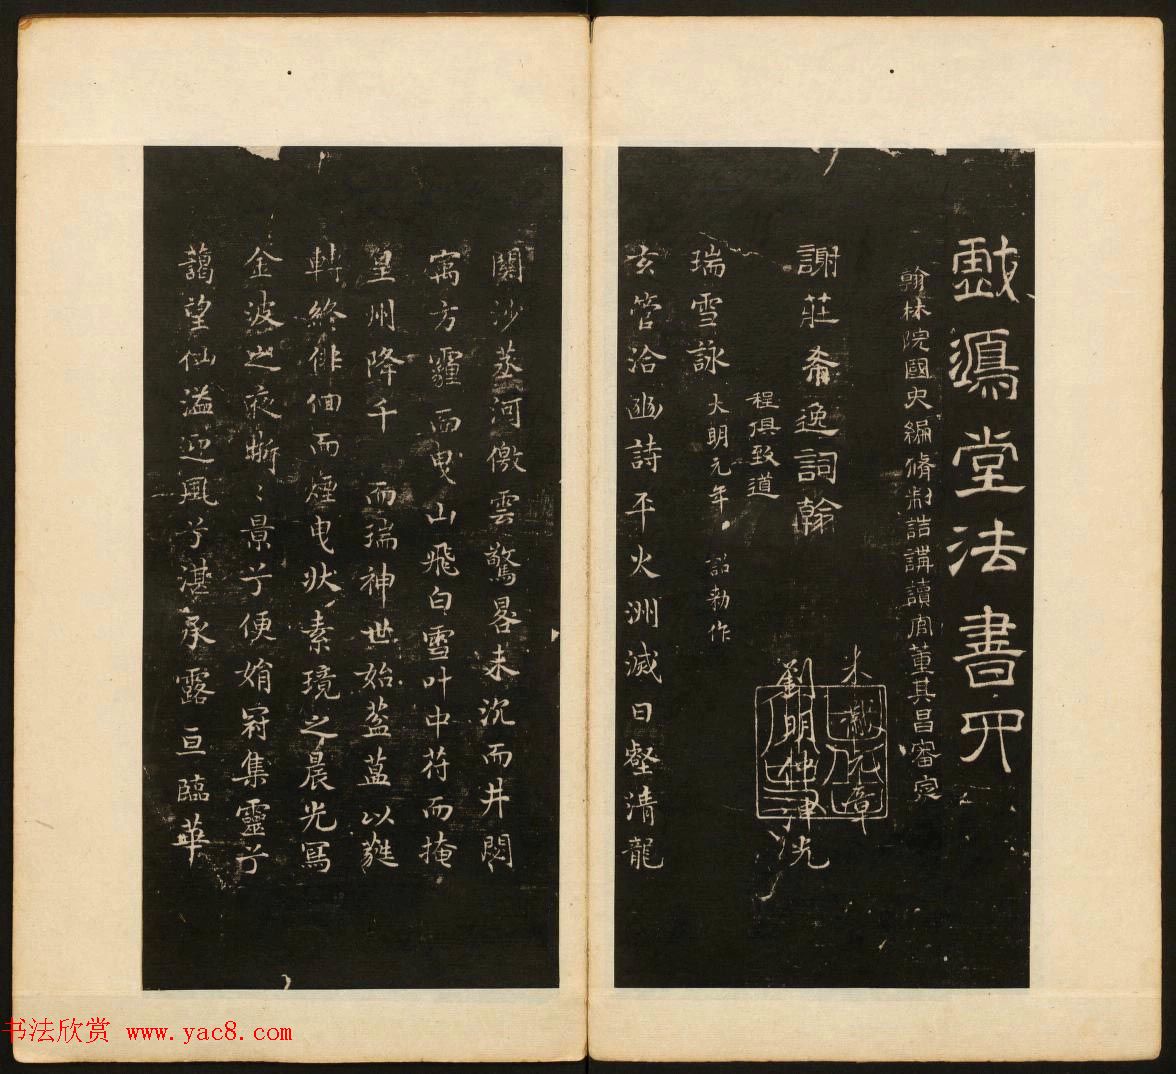 戲鴻堂法書四
翰林院國史編脩制誥講讀官董其昌審定
謝莊希逸詞翰
程俱致道
米黻元章
劉明仲
瑞雪詠 大明元年 詔勅作
玄管洽幽詩平火洲滅日壑清龍
關沙蒸河徼雲驚畧未沉而井閟
寓方霾而曳山飛白雪叶中苻而掩
皇州降千 而瑞神世始蓊蓝以蕤
轉終徘徊而煙曳狀素境之晨光寫
金波之夜晣〻景兮便娟冠集靈兮
藹望仙溢迎風兮湛承露亘臨華
书法欣赏 www.yac8.com